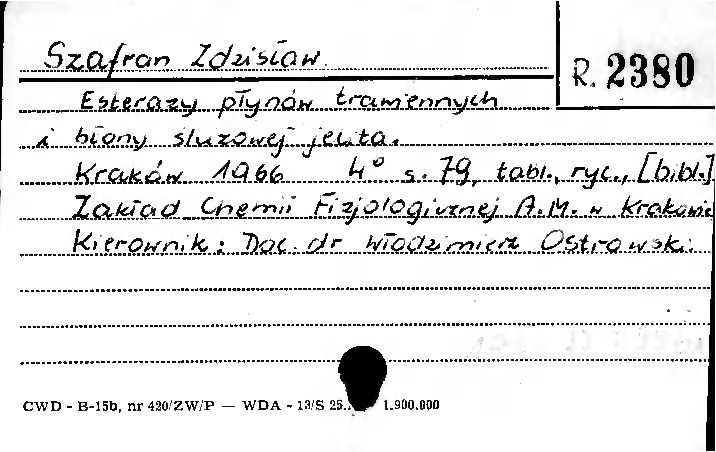 Szafran Zdzisław.
R. 2380
Esterazy płynów trawiennych
i błony śluzowej jelita.
Kraków 1966 4° s. 79, tabl., ryc., [bibl.]
Zakład Chemii Fizjologicznej A.M. w Krakowie
Kierownik: Doc. dr Włodzimierz Ostrowski.
CWD - B-15b, nr 420/ZW/P — WDA - 13/S 25. 1.900.000